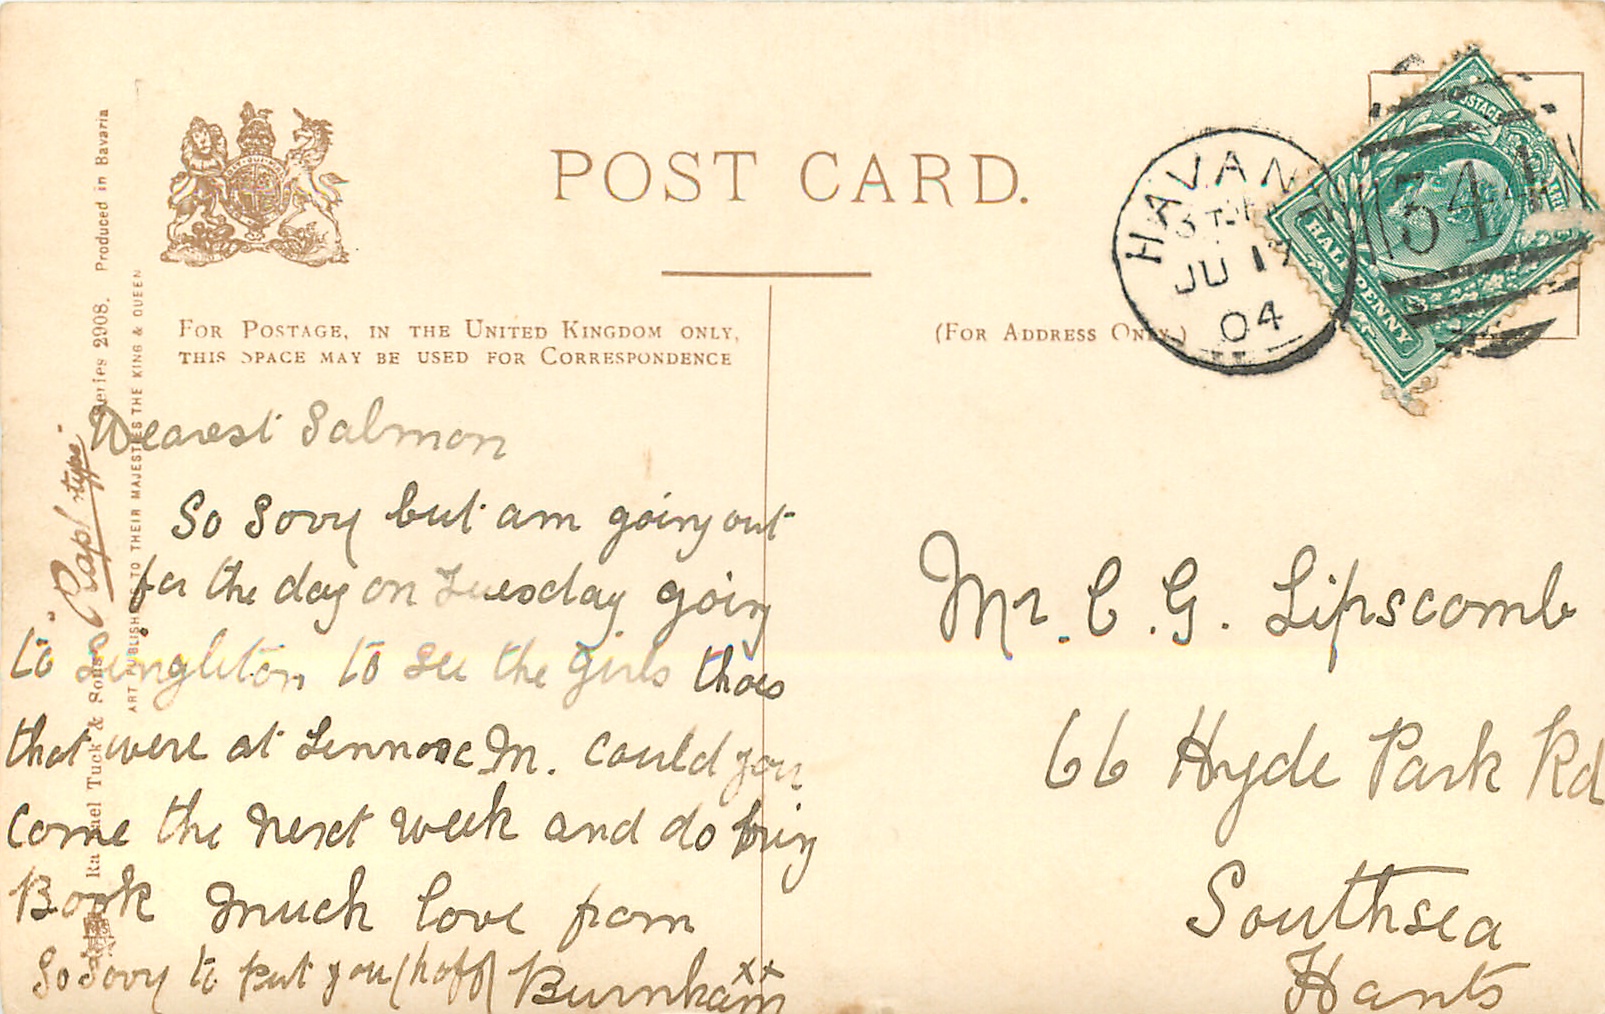 POST CARD.
FOR POSTAGE, IN THE UNITED KINGDOM ONLY,
THIS SPACE MAY BE USED FOR CORRESPONDENCE
(FOR ADDRESS ONLY.)
HAVAN
JU 17
04
POSTAGE
344
HALF PENNY
Raphael Tuck & Sons' "Raphotype" Series 2908. Produced in Bavaria
ART PUBLISHERS TO THEIR MAJESTIES THE KING & QUEEN
Dearest Salmon
So Sorry but am going out
for the day on Tuesday going
to Singleton to see the girls thoes
that were at Lennox M. Could you
come the next week and do bring
Book much love from
So sorry to put you (hoff) Burnham
xx
Mr. C. G. Lipscomb
66 Hyde Park Rd
Southsea
Hants